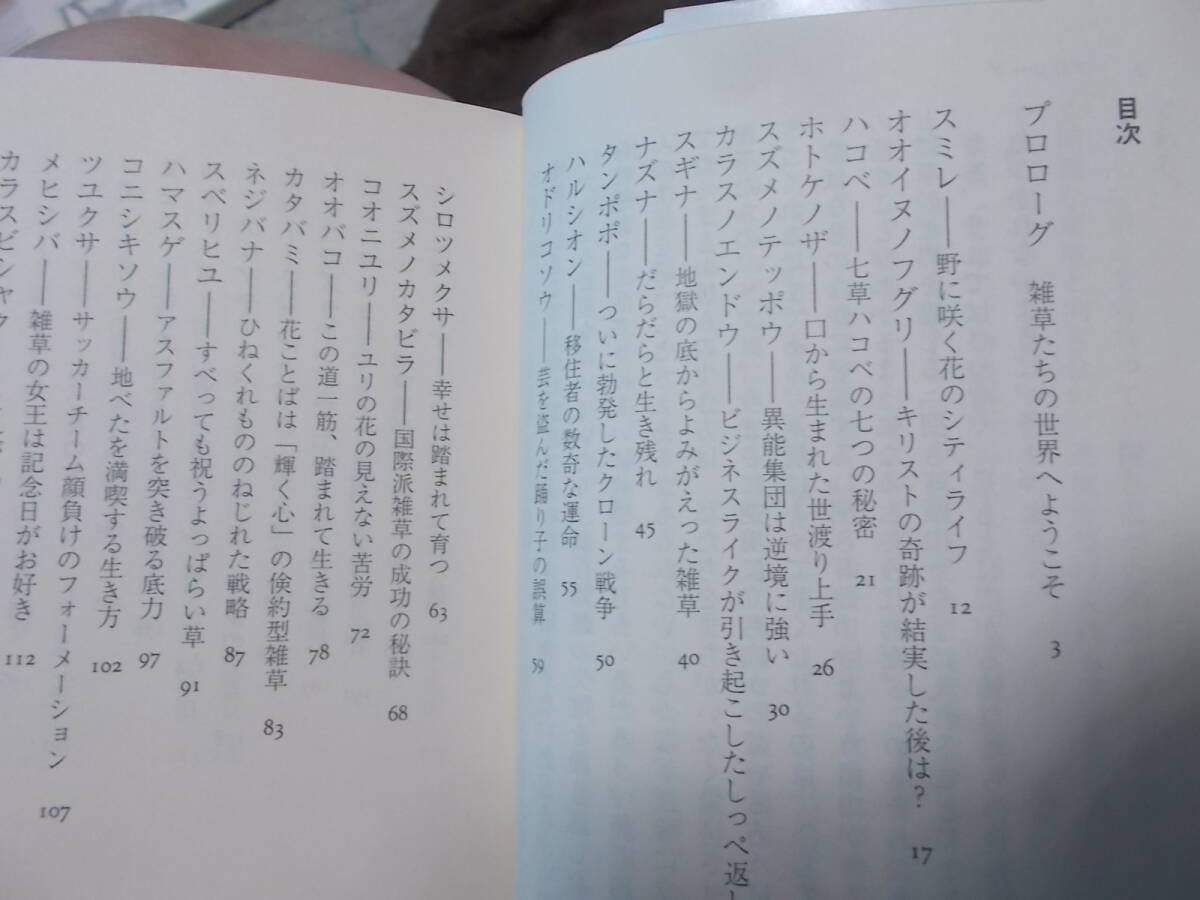 目次
プロローグ　雑草たちの世界へようこそ　3
スミレ――野に咲く花のシティライフ　12
オオイヌノフグリ――キリストの奇跡が結実した後は？　17
ハコベ――七草ハコベの七つの秘密　21
ホトケノザ――口から生まれた世渡り上手　26
スズメノテッポウ――異能集団は逆境に強い　30
カラスノエンドウ――ビジネスライクが引き起こしたしっぺ返し
スギナ――地獄の底からよみがえった雑草　40
ナズナ――だらだらと生き残れ　45
タンポポ――ついに勃発したクローン戦争　50
ハルシオン――移住者の数奇な運命　55
オドリコソウ――芸を盗んだ踊り子の誤算　59
シロツメクサ――幸せは踏まれて育つ　63
スズメノカタビラ――国際派雑草の成功の秘訣　68
コオニユリ――ユリの花の見えない苦労　72
オオバコ――この道一筋、踏まれて生きる　78
カタバミ――花ことばは「輝く心」の倹約型雑草　83
ネジバナ――ひねくれもののねじれた戦略　87
スベリヒユ――すべっても祝うよっぱらい草　91
ハマスゲ――アスファルトを突き破る底力　97
コニシキソウ――地べたを満喫する生き方　102
ツユクサ――サッカーチーム顔負けのフォーメーション　107
メヒシバ――雑草の女王は記念日がお好き　112
カラスビシャク